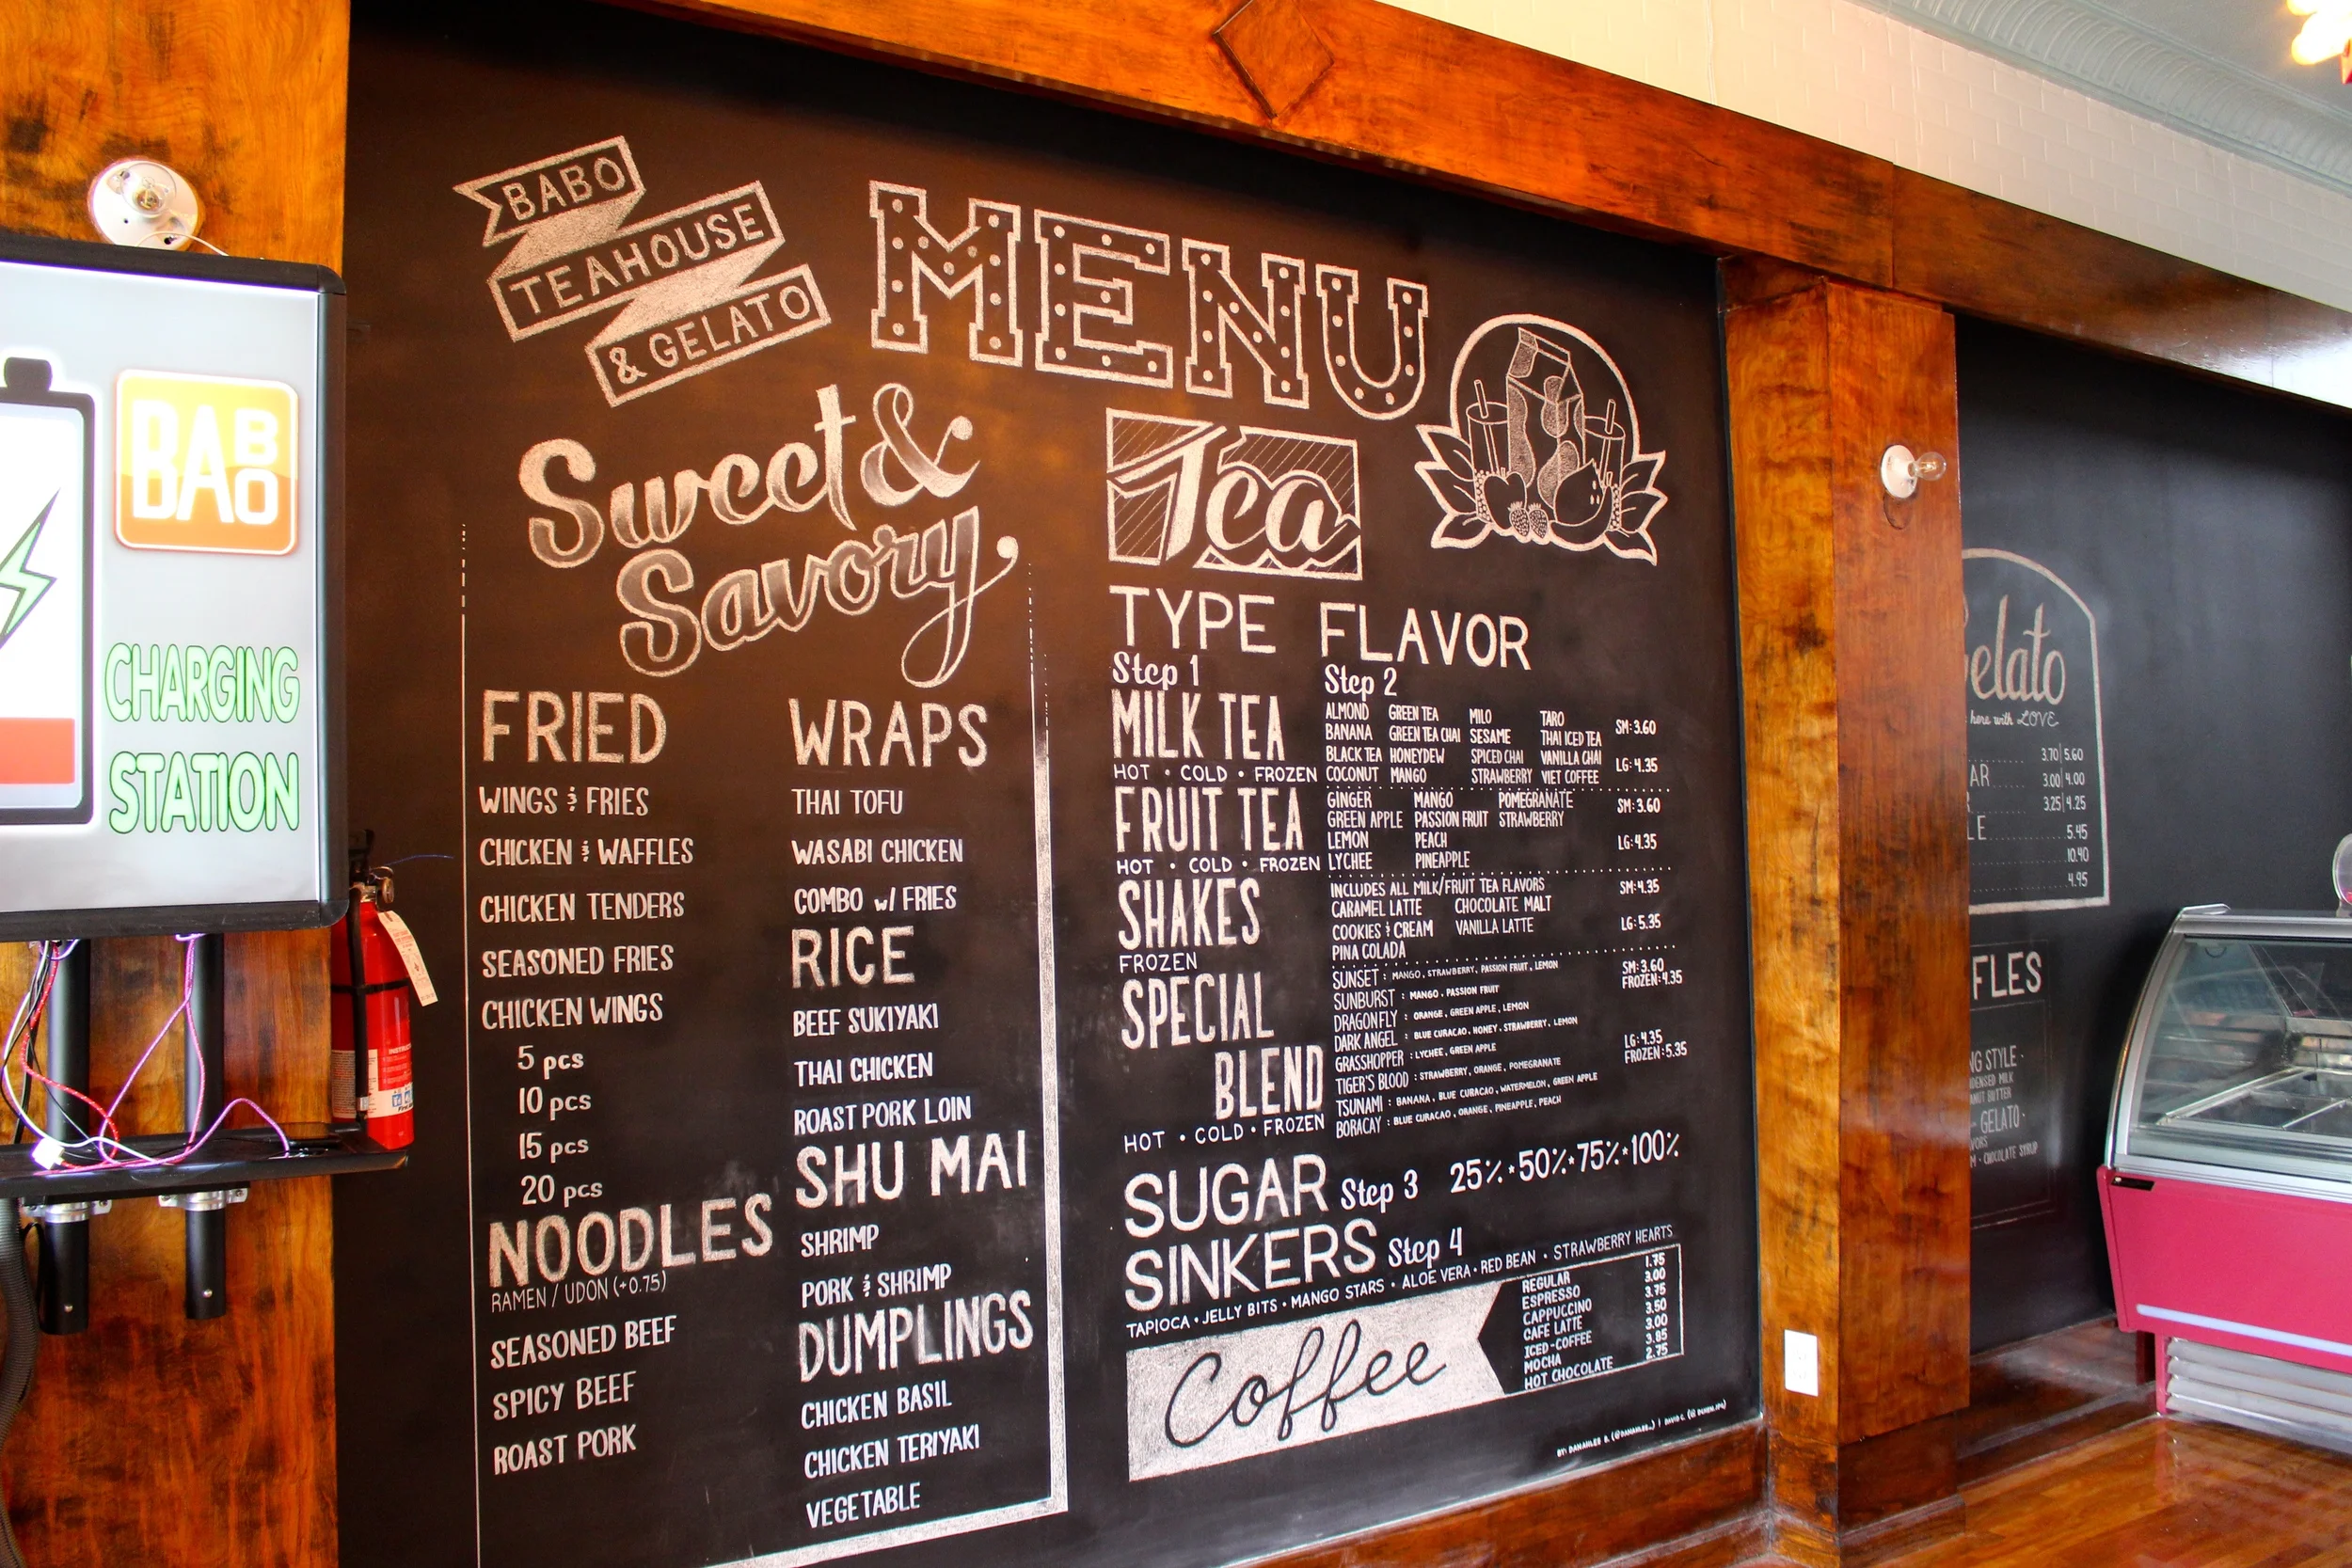 BABO
TEAHOUSE
& GELATO
MENU
Sweet &
Savory
FRIED
WINGS & FRIES
CHICKEN & WAFFLES
CHICKEN TENDERS
SEASONED FRIES
CHICKEN WINGS
5 pcs
10 pcs
15 pcs
20 pcs
NOODLES
RAMEN / UDON (+0.75)
SEASONED BEEF
SPICY BEEF
ROAST PORK
WRAPS
THAI TOFU
WASABI CHICKEN
COMBO w/ FRIES
RICE
BEEF SUKIYAKI
THAI CHICKEN
ROAST PORK LOIN
SHU MAI
SHRIMP
PORK & SHRIMP
DUMPLINGS
CHICKEN BASIL
CHICKEN TERIYAKI
VEGETABLE
Tea
TYPE FLAVOR
Step 1 Step 2
MILK TEA
HOT • COLD • FROZEN
ALMOND GREEN TEA MILO TARO
BANANA GREEN TEA CHAI SESAME THAI ICED TEA
BLACK TEA HONEYDEW SPICED CHAI VANILLA CHAI
COCONUT MANGO STRAWBERRY VIET COFFEE
SM: 3.60
LG: 4.35
FRUIT TEA
HOT • COLD • FROZEN
GINGER MANGO POMEGRANATE
GREEN APPLE PASSION FRUIT STRAWBERRY
LEMON PEACH
LYCHEE PINEAPPLE
SM: 3.60
LG: 4.35
SHAKES
FROZEN
INCLUDES ALL MILK/FRUIT TEA FLAVORS
CARAMEL LATTE CHOCOLATE MALT
COOKIES & CREAM VANILLA LATTE
PINA COLADA
SM: 4.35
LG: 5.35
SPECIAL
BLEND
HOT • COLD • FROZEN
SUNSET : MANGO, STRAWBERRY, PASSION FRUIT, LEMON
SUNBURST : MANGO, PASSION FRUIT
DRAGONFLY : ORANGE, GREEN APPLE, LEMON
DARK ANGEL : BLUE CURACAO, HONEY, STRAWBERRY, LEMON
GRASSHOPPER : LYCHEE, GREEN APPLE
TIGER'S BLOOD : STRAWBERRY, ORANGE, POMEGRANATE
TSUNAMI : BANANA, BLUE CURACAO, WATERMELON, GREEN APPLE
BORACAY : BLUE CURACAO, ORANGE, PINEAPPLE, PEACH
SM: 3.60
FROZEN: 4.35
LG: 4.35
FROZEN: 5.35
SUGAR Step 3 25% • 50% • 75% • 100%
SINKERS Step 4
TAPIOCA • JELLY BITS • MANGO STARS • ALOE VERA • RED BEAN • STRAWBERRY HEARTS
Coffee
REGULAR 1.75
ESPRESSO 3.00
CAPPUCCINO 3.75
CAFE LATTE 3.50
ICED-COFFEE 3.00
MOCHA 3.85
HOT CHOCOLATE 2.75
BABO
CHARGING
STATION
Gelato
here with LOVE
3.70 | 5.60
AR 3.00 | 4.00
3.25 | 4.25
LE 5.45
10.90
4.95
FLES
NG STYLE
DENSED MILK
NUT BUTTER
GELATO
VORS
M • CHOCOLATE SYRUP